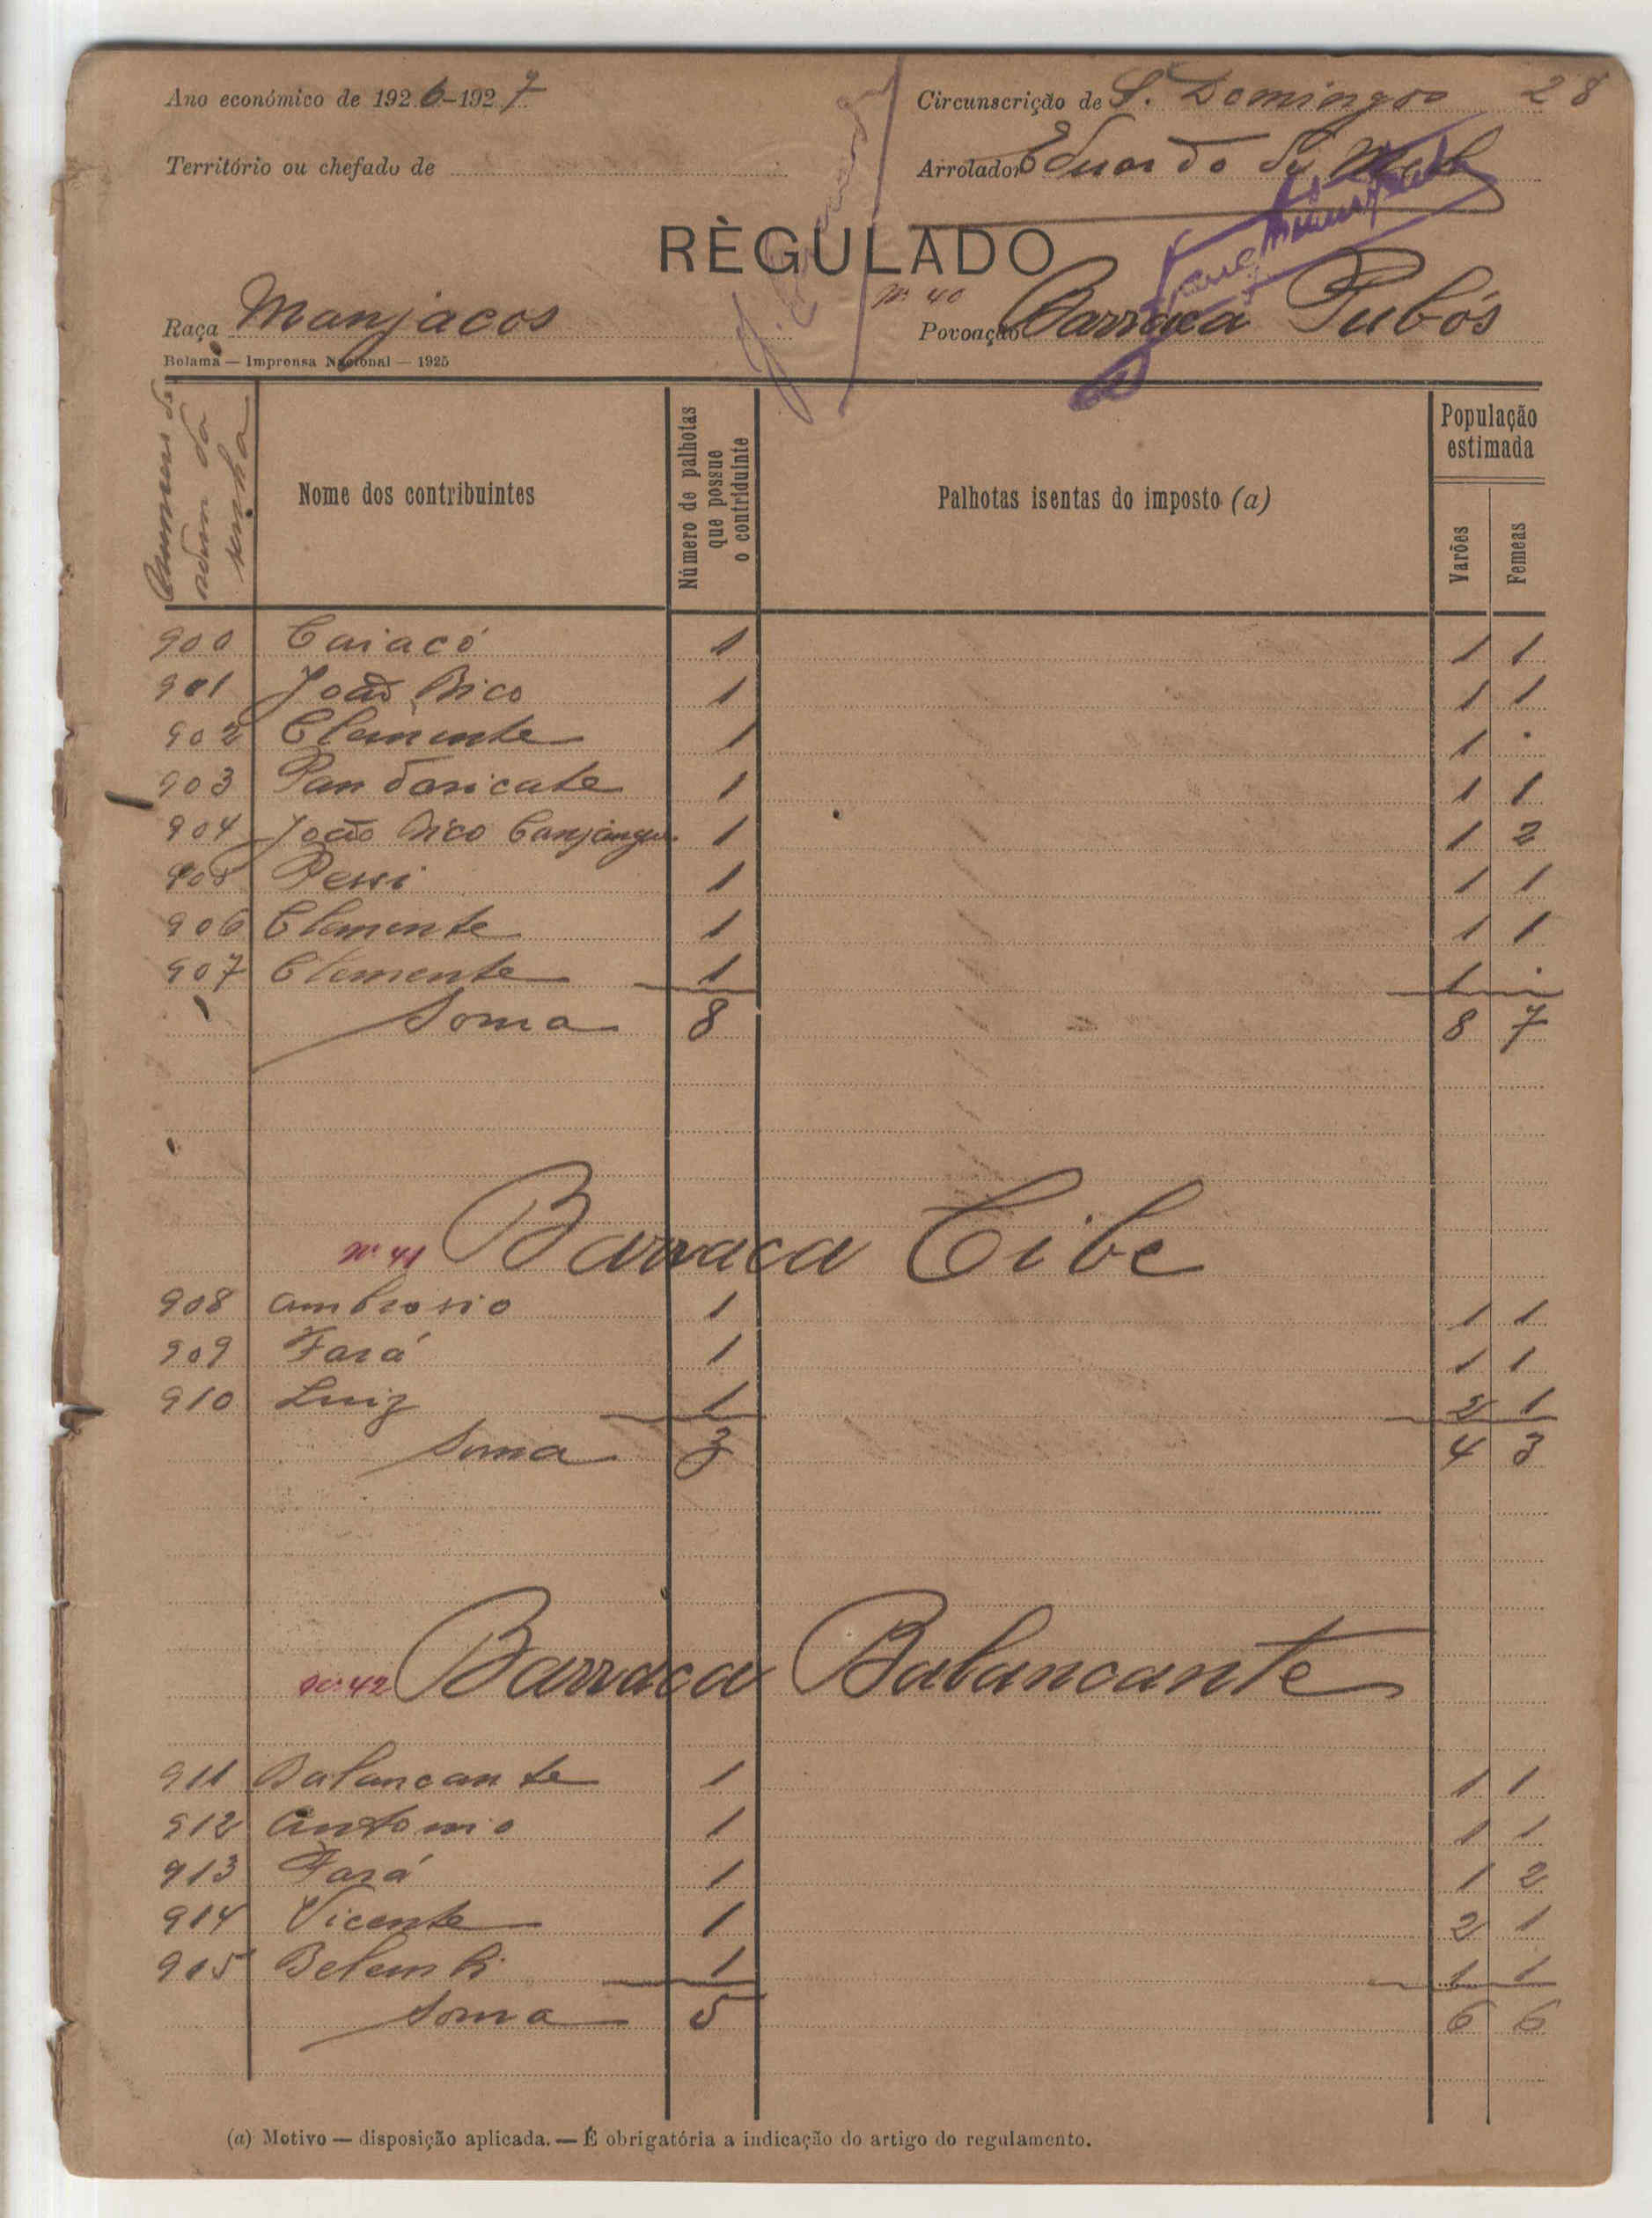 Ano económico de 1926-1927
Circunscrição de S. Domingos 28
Território ou chefado de
Arrolador Eduardo
RÈGULADO
Nº 40
Raça Manjacos
Povoação Barraca Pubós
Bolama — Imprensa Nacional — 1925
da senha
Nome dos contribuintes
Número de palhotas que possue o contriduinte
Palhotas isentas do imposto (a)
População estimada
Varões
Femeas
900 Caiacó 1 1 1
901 João Bico 1 1 1
902 Clemente 1 1 .
903 1 1 1
904 João Bico 1 1 2
905 1 1 1
906 Clemente 1 1 1
907 Clemente 1 1 .
Soma 8 8 7
Nº 41 Barraca Cibe
908 Ambrosio 1 1 1
909 Fará 1 1 1
910 Luiz 1 2 1
Soma 3 4 3
Nº 42 Barraca Balancante
911 Balancante 1 1 1
912 Antonio 1 1 1
913 Fará 1 1 2
914 Vicente 1 2 1
915 1 1 1
Soma 5 6 6
(a) Motivo — disposição aplicada. — É obrigatória a indicação do artigo do regulamento.